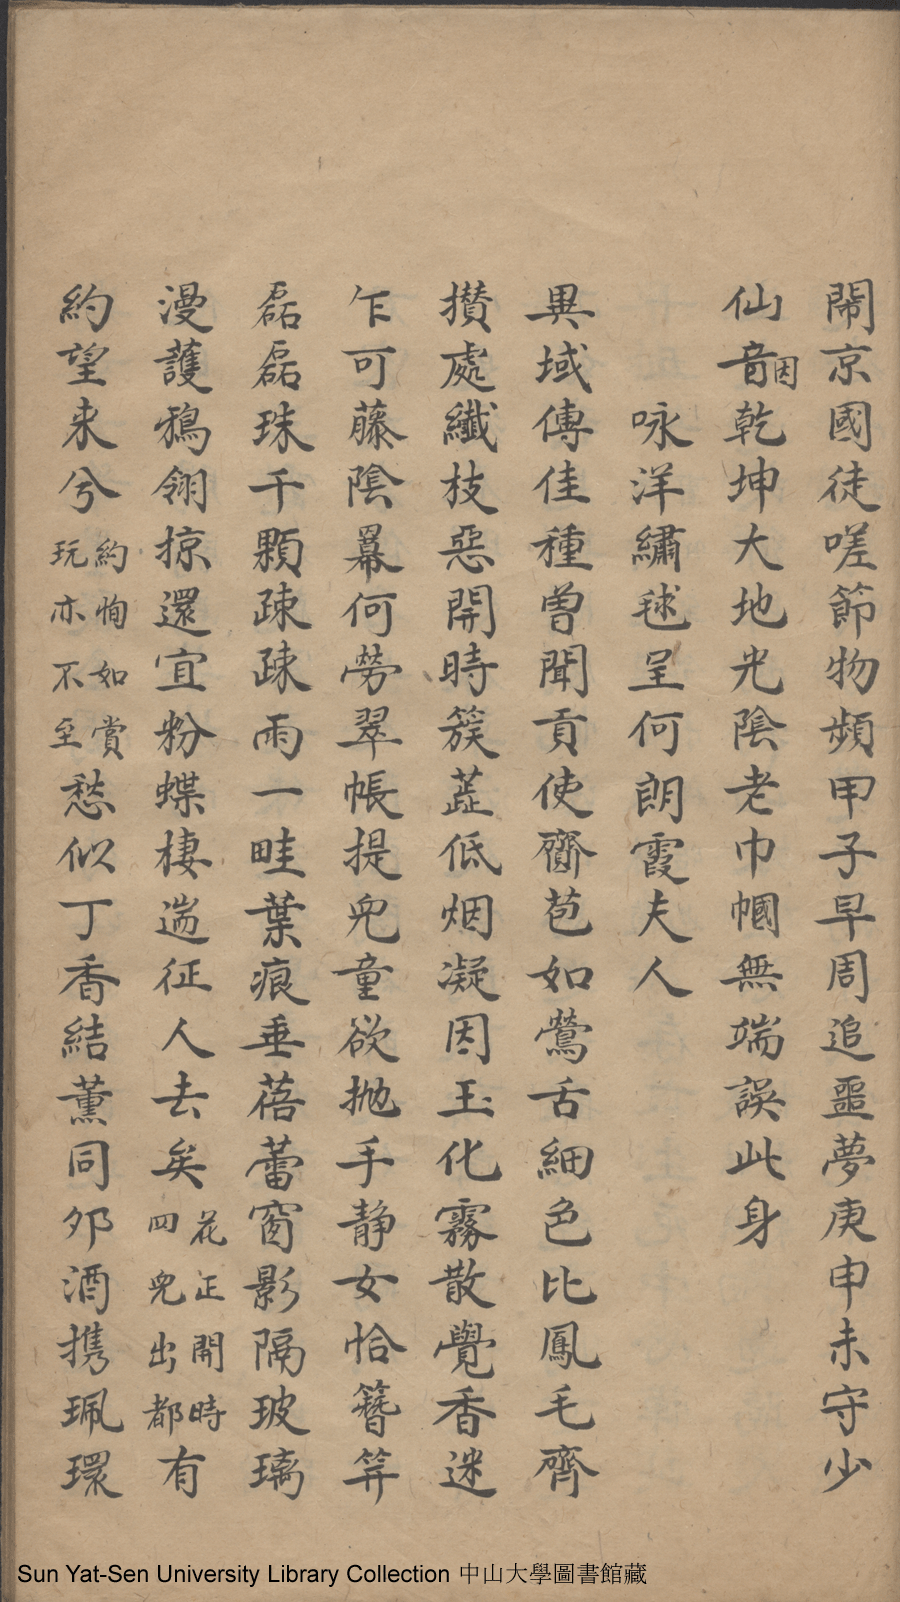 鬧京國徒嗟節物頻甲子早周追噩夢庚申未守少
仙音因乾坤大地光陰老巾幗無端誤此身
咏洋繡毬呈何朗霞夫人
異域傳佳種曾聞貢使齎苞如鶯舌細色比鳳毛齊
攅處纖枝惡開時簇蕋低烟凝因玉化霧散覺香迷
乍可藤陰羃何勞翠帳提兒童欲拋手靜女恰簪笄
磊磊珠千顆疎疎雨一畦葉痕垂蓓蕾窗影隔玻璃
漫護鵶翎掠還宜粉蝶棲遄征人去矣花正開時四兒出都有
約望来兮約恂如賞玩亦不至愁似丁香結薰同夘酒携珮環
Sun Yat-Sen University Library Collection 中山大學圖書館藏